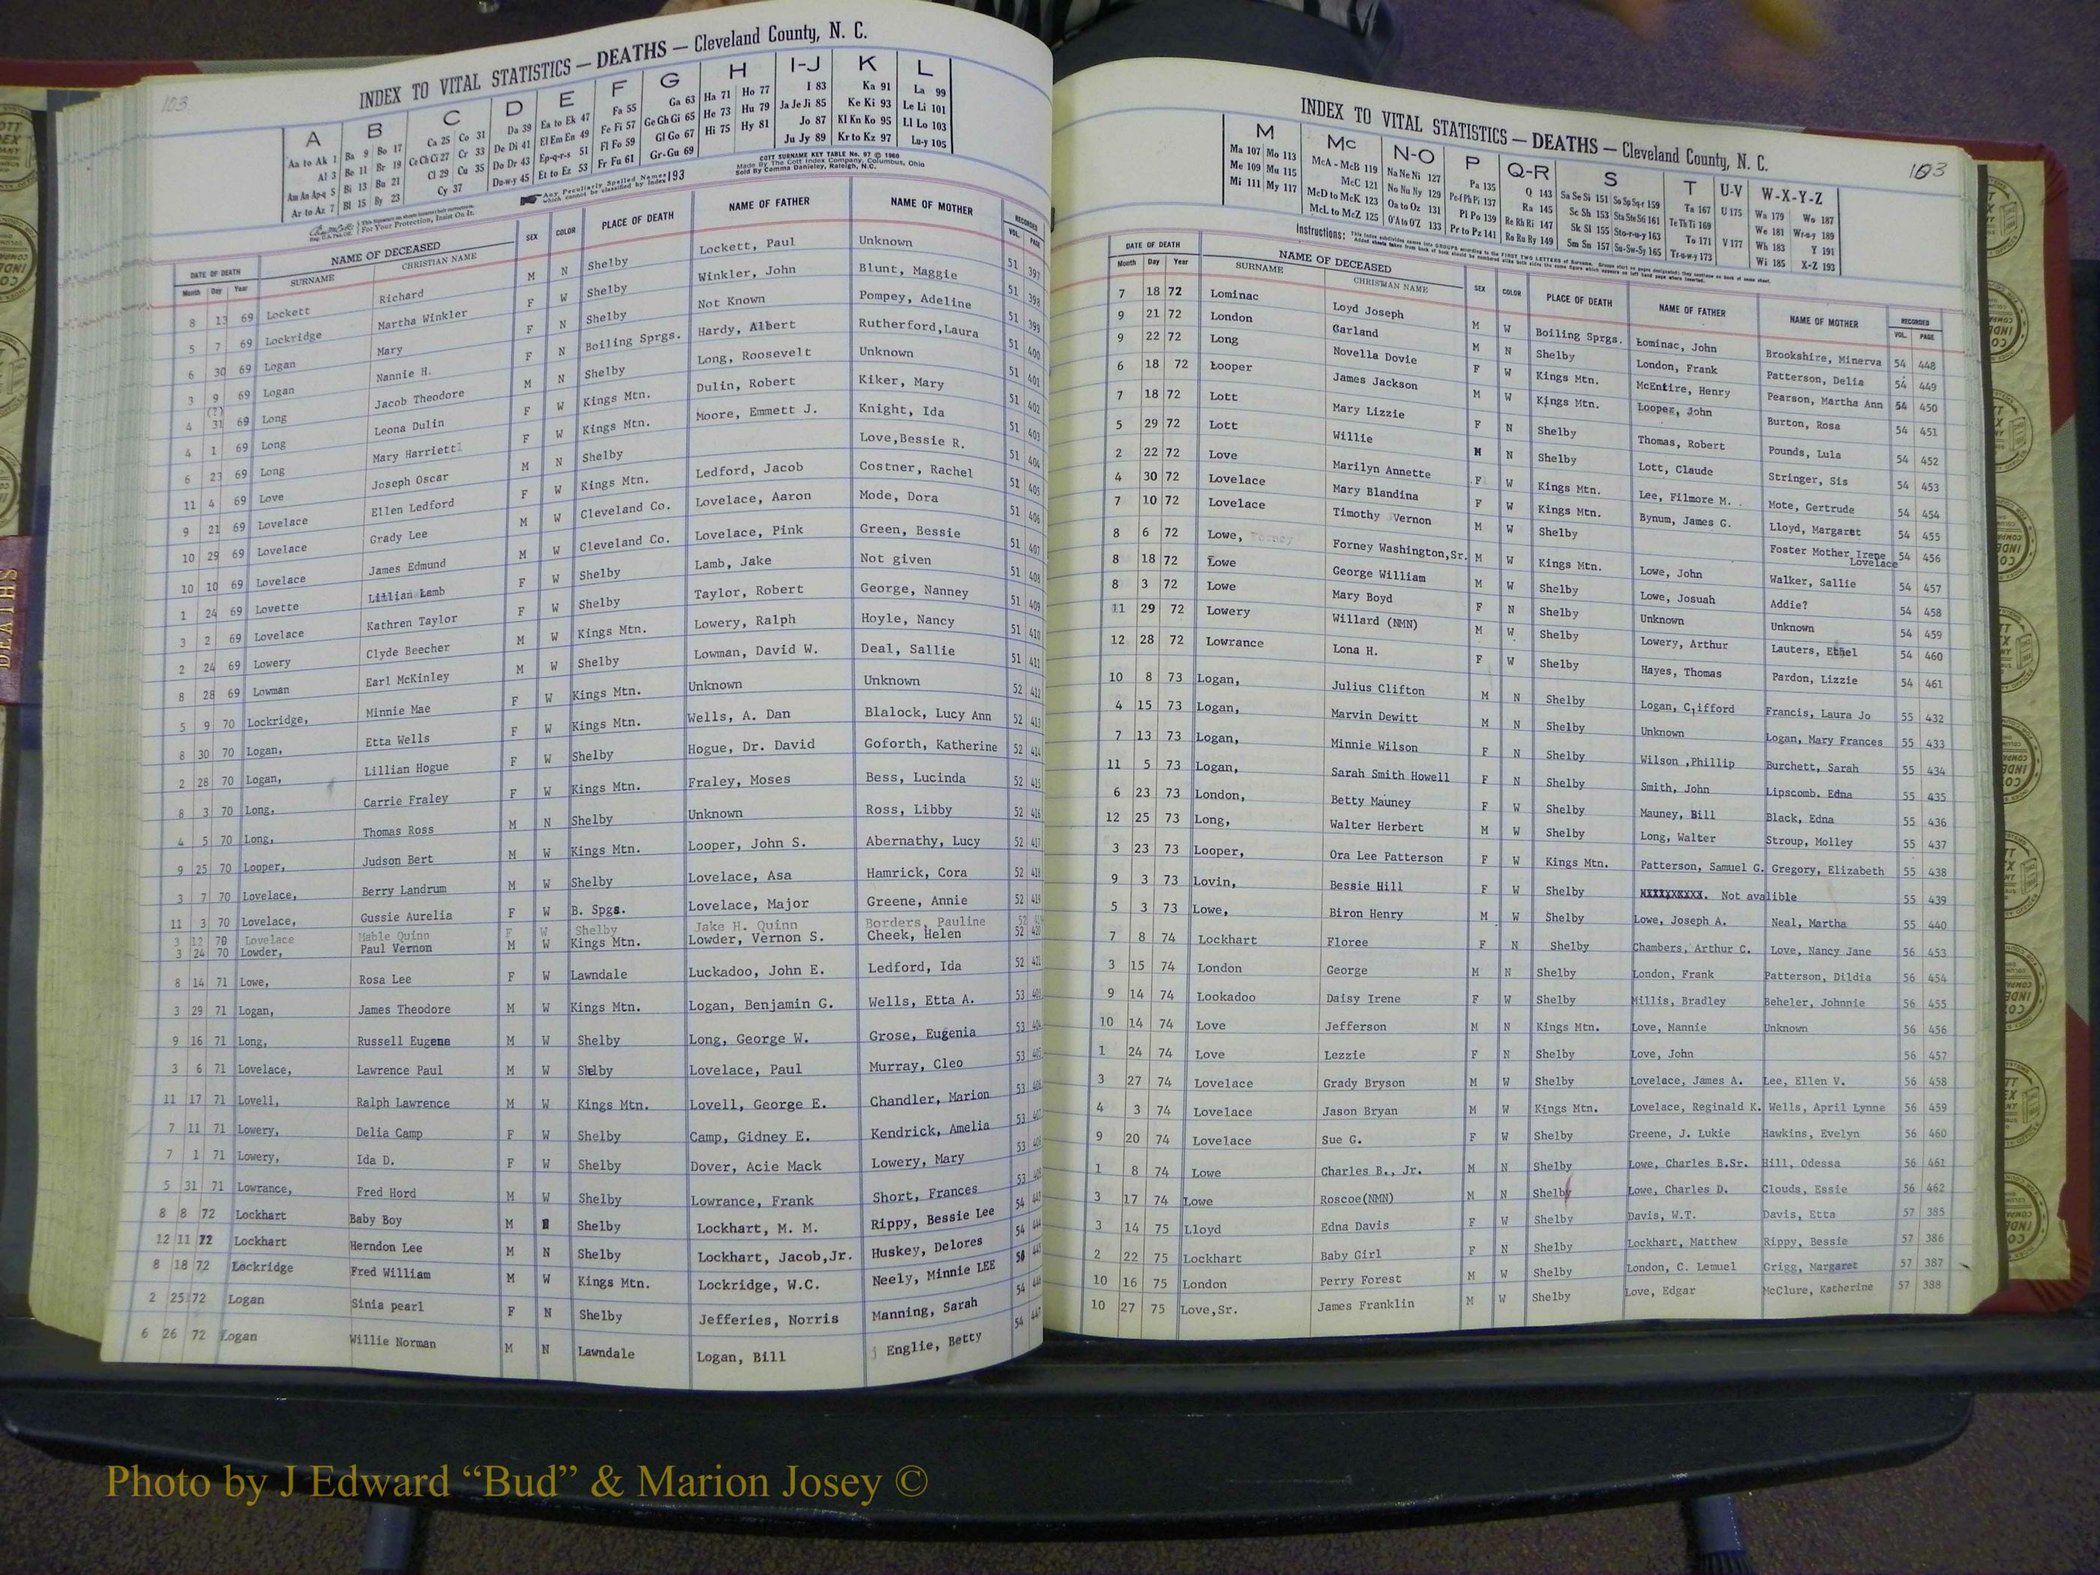 103
INDEX TO VITAL STATISTICS — DEATHS — Cleveland County, N. C.
A B C D E F G H I-J K L
Aa to Ak 1 Ba 9 Bo 17 Ca 25 Co 31 Da 39 Ea to Ek 47 Fa 55 Ga 63 Ha 71 Ho 77 I 83 Ka 91 La 99
Al 3 Be 11 Br 19 Ce Ch Ci 27 Cr 33 De Di 41 El Em En 49 Fe Fi 57 Ge Gh Gi 65 He 73 Hu 79 Ja Je Ji 85 Ke Ki 93 Le Li 101
Am An Ap-q 5 Bi 13 Bu 21 Cl 29 Cu 35 Do Dr 43 Ep-q-r-s 51 Fl Fo 59 Gl Go 67 Hi 75 Hy 81 Jo 87 Kl Kn Ko 95 Ll Lo 103
Ar to Az 7 Bl 15 By 23 Cy 37 Du-w-y 45 Et to Ez 53 Fr Fu 61 Gr-Gu 69 Ju Jy 89 Kr to Kz 97 Lu-y 105
COTT SURNAME KEY TABLE No. 97 © 1960
Made By The Cott Index Company, Columbus, Ohio
Sold By Comma Danieley, Raleigh, N.C.
Any Peculiarly Spelled Names which cannot be classified by Index 193
DATE OF DEATH NAME OF DECEASED SEX COLOR PLACE OF DEATH NAME OF FATHER NAME OF MOTHER RECORDED
Month Day Year SURNAME CHRISTIAN NAME VOL. PAGE
8 13 69 Lockett Richard M N Shelby Lockett, Paul Unknown 51 397
5 7 69 Lockridge Martha Winkler F W Shelby Winkler, John Blunt, Maggie 51 398
6 30 69 Logan Mary F N Shelby Not Known Pompey, Adeline 51 399
3 9 69 Logan Nannie H. F N Boiling Sprgs. Hardy, Albert Rutherford,Laura 51 400
(?)
4 31 69 Long Jacob Theodore M N Shelby Long, Roosevelt Unknown 51 401
4 1 69 Long Leona Dulin F W Kings Mtn. Dulin, Robert Kiker, Mary 51 402
6 23 69 Long Mary Harriett F W Kings Mtn. Moore, Emmett J. Knight, Ida 51 403
11 4 69 Love Joseph Oscar M N Shelby Love,Bessie R. 51 404
9 21 69 Lovelace Ellen Ledford F W Kings Mtn. Ledford, Jacob Costner, Rachel 51 405
10 29 69 Lovelace Grady Lee M W Cleveland Co. Lovelace, Aaron Mode, Dora 51 406
10 10 69 Lovelace James Edmund M W Cleveland Co. Lovelace, Pink Green, Bessie 51 407
1 24 69 Lovette Lillian Lamb F W Shelby Lamb, Jake Not given 51 408
3 2 69 Lovelace Kathren Taylor F W Shelby Taylor, Robert George, Nanney 51 409
2 24 69 Lowery Clyde Beecher M W Kings Mtn. Lowery, Ralph Hoyle, Nancy 51 410
8 28 69 Lowman Earl McKinley M W Shelby Lowman, David W. Deal, Sallie 51 411
5 9 70 Lockridge, Minnie Mae F W Kings Mtn. Unknown Unknown 52 412
8 30 70 Logan, Etta Wells F W Kings Mtn. Wells, A. Dan Blalock, Lucy Ann 52 413
2 28 70 Logan, Lillian Hogue F W Shelby Hogue, Dr. David Goforth, Katherine 52 414
8 3 70 Long, Carrie Fraley F W Kings Mtn. Fraley, Moses Bess, Lucinda 52 415
4 5 70 Long, Thomas Ross M N Shelby Unknown Ross, Libby 52 416
9 25 70 Looper, Judson Bert M W Kings Mtn. Looper, John S. Abernathy, Lucy 52 417
3 7 70 Lovelace, Berry Landrum M W Shelby Lovelace, Asa Hamrick, Cora 52 418
11 3 70 Lovelace, Gussie Aurelia F W B. Spgs. Lovelace, Major Greene, Annie 52 419
3 12 70 Lovelace Mable Quinn F W Shelby Jake H. Quinn Borders, Pauline 52
3 24 70 Lowder, Paul Vernon M W Kings Mtn. Lowder, Vernon S. Cheek, Helen 52 420
8 14 71 Lowe, Rosa Lee F W Lawndale Luckadoo, John E. Ledford, Ida 52 421
3 29 71 Logan, James Theodore M W Kings Mtn. Logan, Benjamin G. Wells, Etta A. 53 403
9 16 71 Long, Russell Eugene M W Shelby Long, George W. Grose, Eugenia 53 404
3 6 71 Lovelace, Lawrence Paul M W Shelby Lovelace, Paul Murray, Cleo 53 405
11 17 71 Lovell, Ralph Lawrence M W Kings Mtn. Lovell, George E. Chandler, Marion 53 406
7 11 71 Lowery, Delia Camp F W Shelby Camp, Gidney E. Kendrick, Amelia 53 407
7 1 71 Lowery, Ida D. F W Shelby Dover, Acie Mack Lowery, Mary 53 408
5 31 71 Lowrance, Fred Hord M W Shelby Lowrance, Frank Short, Frances 53 409
8 8 72 Lockhart Baby Boy M Shelby Lockhart, M. M. Rippy, Bessie Lee 54 443
12 11 72 Lockhart Herndon Lee M N Shelby Lockhart, Jacob,Jr. Huskey, Delores 54 444
8 18 72 Lockridge Fred William M W Kings Mtn. Lockridge, W.C. Neely, Minnie LEE 445
2 25 72 Logan Sinia pearl F N Shelby Jefferies, Norris Manning, Sarah 54 446
6 26 72 Logan Willie Norman M N Lawndale Logan, Bill Englie, Betty 54 447
INDEX TO VITAL STATISTICS — DEATHS — Cleveland County, N. C. 103
M Mc N-O P Q-R S T U-V W-X-Y-Z
Ma 107 Mo 113 McA - McB 119 Na Ne Ni 127 Pa 135 Q 143 Sa Se Si 151 So Sp Sq-r 159 Ta 167 U 175 Wa 179 Wo 187
Me 109 Mu 115 McC 121 No Nu Ny 129 Pe-f Ph Pi 137 Ra 145 Sc Sh 153 Sta Ste Sti 161 Te Th Ti 169 We 181 Wr-u-y 189
Mi 111 My 117 McD to McK 123 Oa to Oz 131 Pl Po 139 Re Rh Ri 147 Sk Sl 155 Sto-r-u-y 163 To 171 V 177 Wh 183 Y 191
McL to McZ 125 O'A to O'Z 133 Pr to Pz 141 Ro Ru Ry 149 Sm Sn 157 Su-Sw-Sy 165 Tr-u-w-y 173 Wi 185 X-Z 193
DATE OF DEATH NAME OF DECEASED SEX COLOR PLACE OF DEATH NAME OF FATHER NAME OF MOTHER RECORDED
Month Day Year SURNAME CHRISTIAN NAME VOL. PAGE
7 18 72 Lominac Loyd Joseph M W Boiling Sprgs. Lominac, John Brookshire, Minerva 54 448
9 21 72 London Garland M N Shelby London, Frank Patterson, Delia 54 449
9 22 72 Long Novella Dovie F W Kings Mtn. McEntire, Henry Pearson, Martha Ann 54 450
6 18 72 Looper James Jackson M W Kings Mtn. Looper, John Burton, Rosa 54 451
7 18 72 Lott Mary Lizzie F N Shelby Thomas, Robert Pounds, Lula 54 452
5 29 72 Lott Willie M N Shelby Lott, Claude Stringer, Sis 54 453
2 22 72 Love Marilyn Annette F W Kings Mtn. Lee, Filmore M. Mote, Gertrude 54 454
4 30 72 Lovelace Mary Blandina F W Kings Mtn. Bynum, James G. Lloyd, Margaret 54 455
7 10 72 Lovelace Timothy Vernon M W Shelby Foster Mother Irene Lovelace 54 456
8 6 72 Lowe, Forney Washington,Sr. M W Kings Mtn. Lowe, John Walker, Sallie 54 457
8 18 72 Lowe George William M W Shelby Lowe, Josuah Addie? 54 458
8 3 72 Lowe Mary Boyd F N Shelby Unknown Unknown 54 459
11 29 72 Lowery Willard (NMN) M W Shelby Lowery, Arthur Lauters, Ethel 54 460
12 28 72 Lowrance Lona H. F W Shelby Hayes, Thomas Pardon, Lizzie 54 461
10 8 73 Logan, Julius Clifton M N Shelby Logan, Clifford Francis, Laura Jo 55 432
4 15 73 Logan, Marvin Dewitt M N Shelby Unknown Logan, Mary Frances 55 433
7 13 73 Logan, Minnie Wilson F N Shelby Wilson ,Phillip Burchett, Sarah 55 434
11 5 73 Logan, Sarah Smith Howell F N Shelby Smith, John Lipscomb. Edna 55 435
6 23 73 London, Betty Mauney F W Shelby Mauney, Bill Black, Edna 55 436
12 25 73 Long, Walter Herbert M W Shelby Long, Walter Stroup, Molley 55 437
3 23 73 Looper, Ora Lee Patterson F W Kings Mtn. Patterson, Samuel G. Gregory, Elizabeth 55 438
9 3 73 Lovin, Bessie Hill F W Shelby Not avalible 55 439
5 3 73 Lowe, Biron Henry M W Shelby Lowe, Joseph A. Neal, Martha 55 440
7 8 74 Lockhart Floree F N Shelby Chambers, Arthur C. Love, Nancy Jane 56 453
3 15 74 London George M N Shelby London, Frank Patterson, Dildia 56 454
9 14 74 Lookadoo Daisy Irene F W Shelby Millis, Bradley Beheler, Johnnie 56 455
10 14 74 Love Jefferson M N Kings Mtn. Love, Mannie Unknown 56 456
1 24 74 Love Lezzie F N Shelby Love, John 56 457
3 27 74 Lovelace Grady Bryson M W Shelby Lovelace, James A. Lee, Ellen V. 56 458
4 3 74 Lovelace Jason Bryan M W Kings Mtn. Lovelace, Reginald K. Wells, April Lynne 56 459
9 20 74 Lovelace Sue G. F W Shelby Greene, J. Lukie Hawkins, Evelyn 56 460
1 8 74 Lowe Charles B., Jr. M N Shelby Lowe, Charles B.Sr. Hill, Odessa 56 461
3 17 74 Lowe Roscoe(NMN) M N Shelby Lowe, Charles D. Clouds, Essie 56 462
3 14 75 Lloyd Edna Davis F W Shelby Davis, W.T. Davis, Etta 57 385
2 22 75 Lockhart Baby Girl F N Shelby Lockhart, Matthew Rippy, Bessie 57 386
10 16 75 London Perry Forest M W Shelby London, C. Lemuel Grigg, Margaret 57 387
10 27 75 Love,Sr. James Franklin M W Shelby Love, Edgar McClure, Katherine 57 388
DEATHS
Photo by J Edward “Bud” & Marion Josey ©